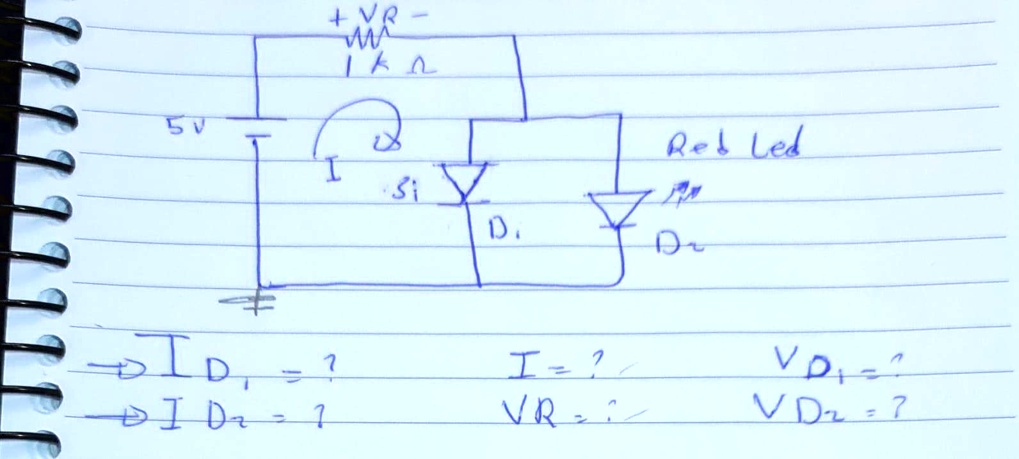 + VR -
1 k Ω
5v
I
Si
D1
Red Led
D2
→ I D1 = ? I = ? VD1 = ?
→ I D2 = ? VR = ? VD2 = ?